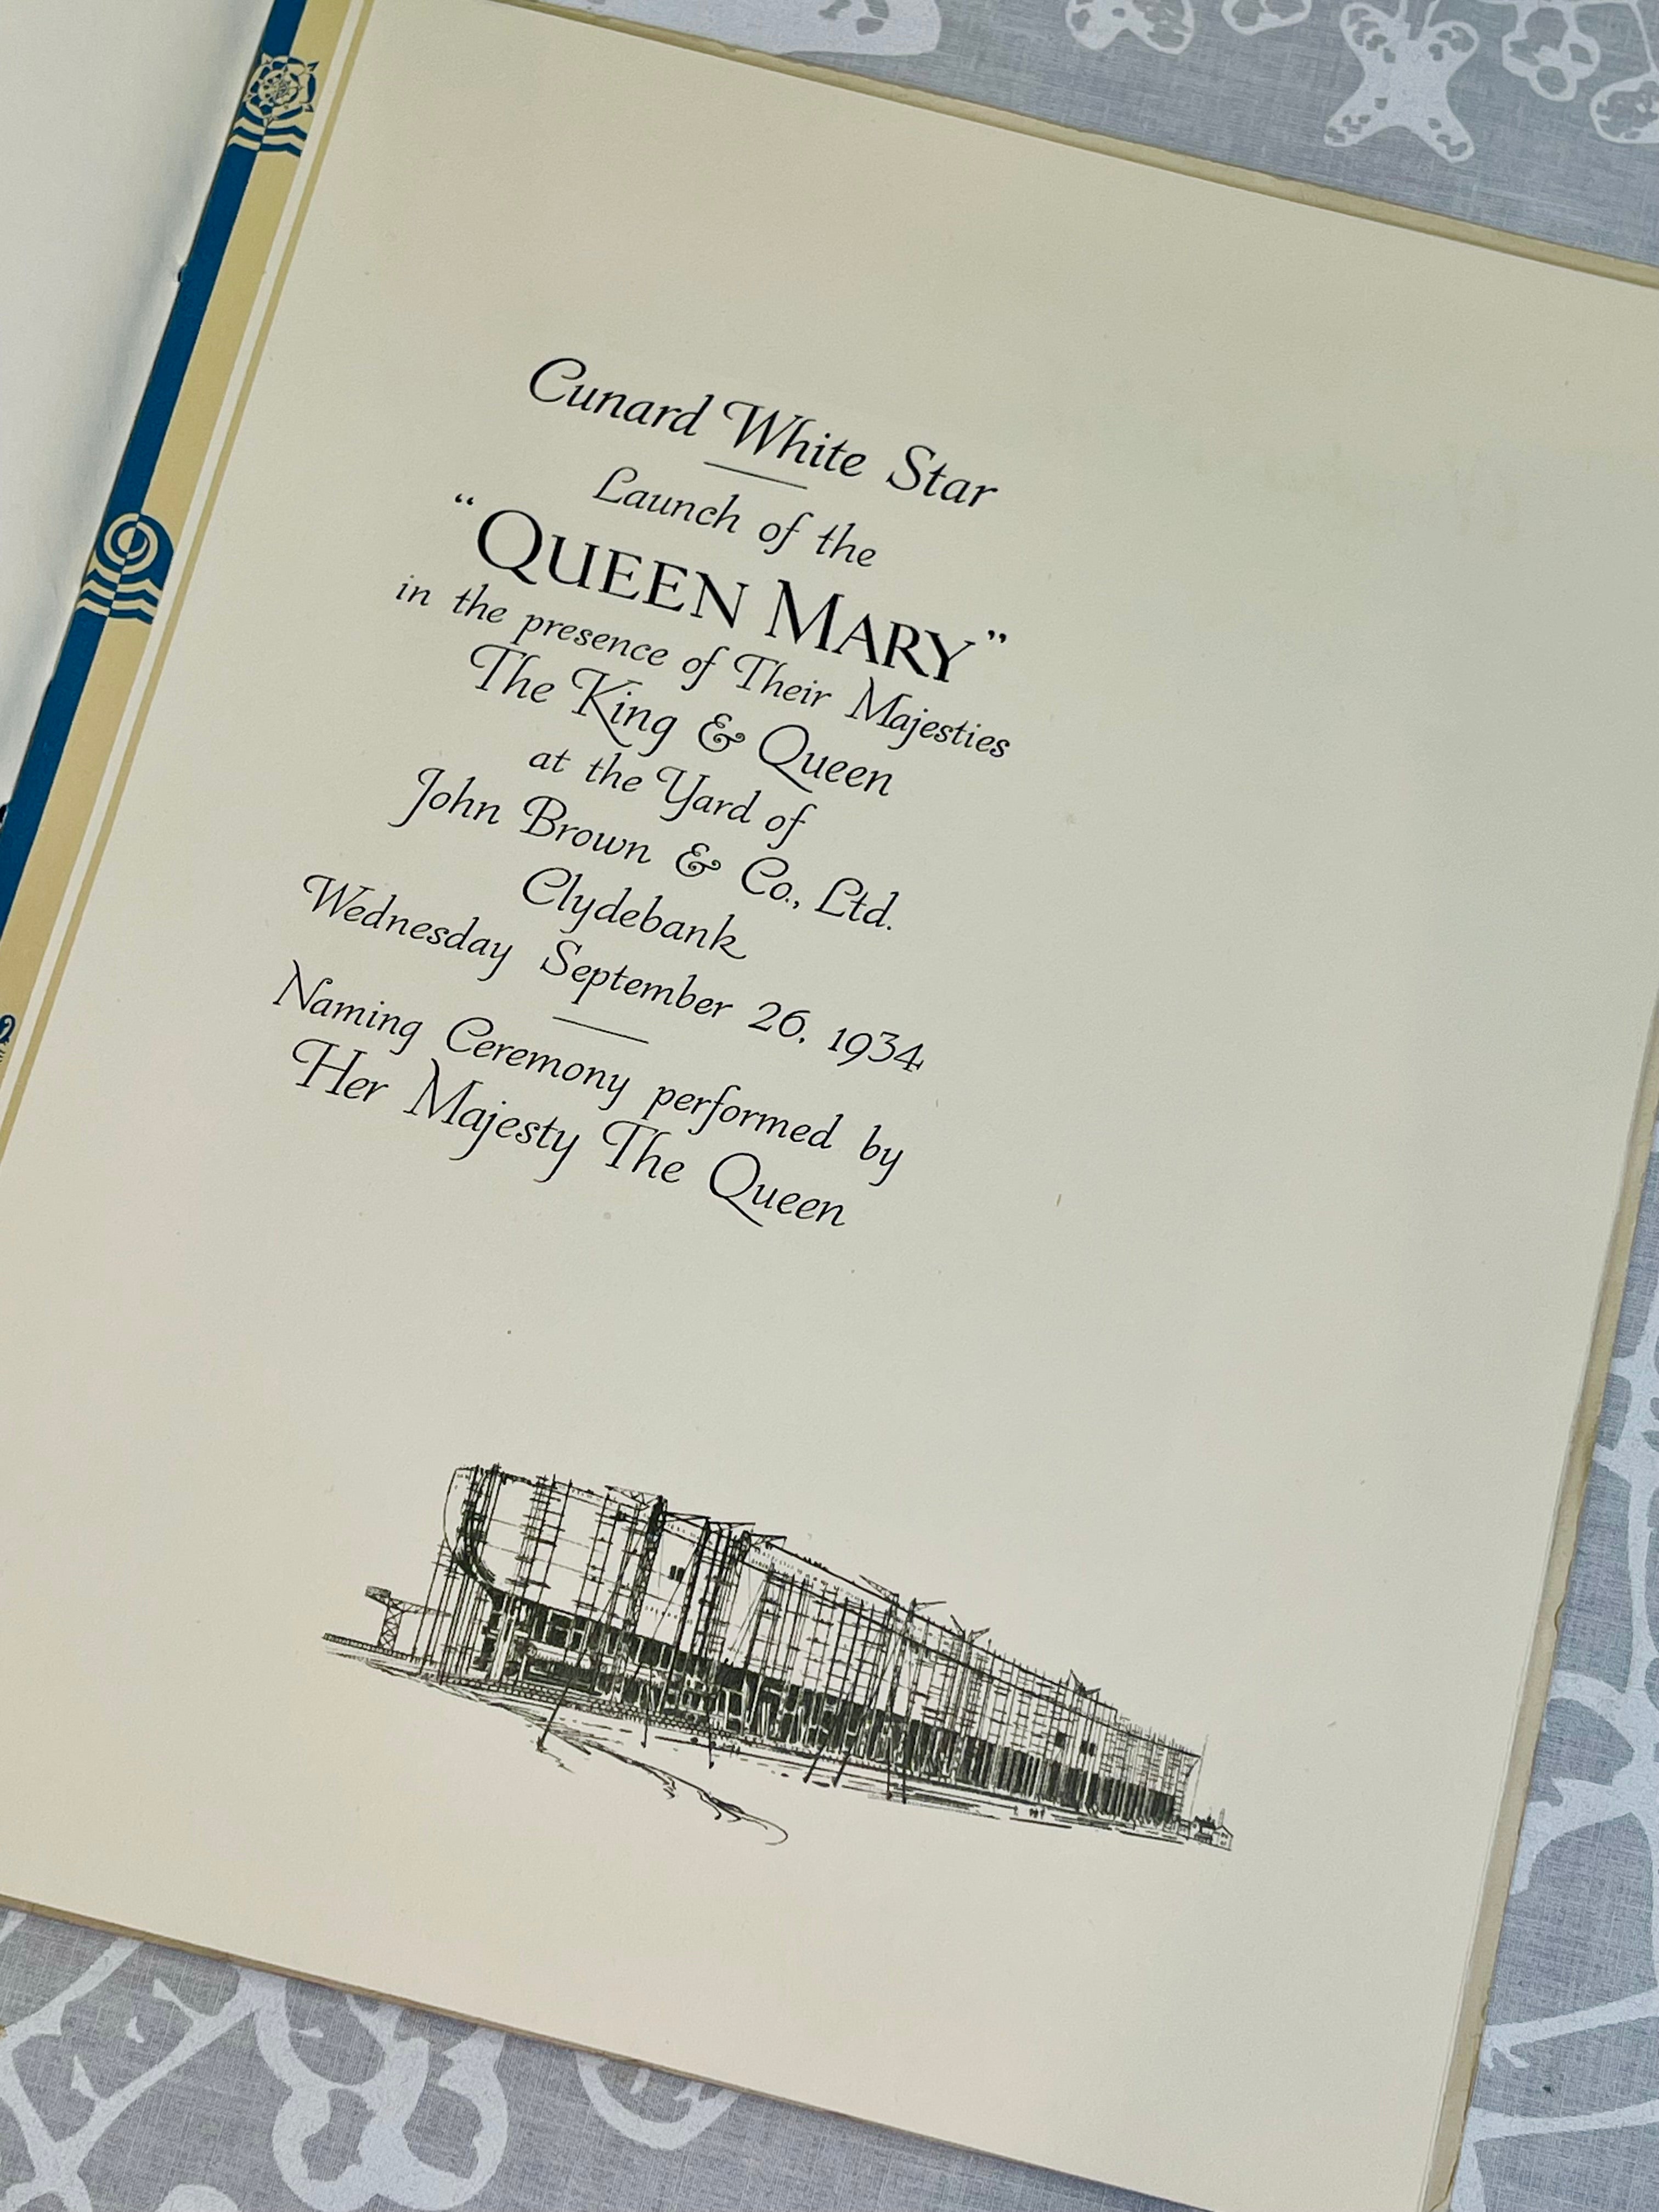 Cunard White Star
Launch of the
“QUEEN MARY”
in the presence of Their Majesties
The King & Queen
at the Yard of
John Brown & Co., Ltd.
Clydebank
Wednesday September 26, 1934
Naming Ceremony performed by
Her Majesty The Queen